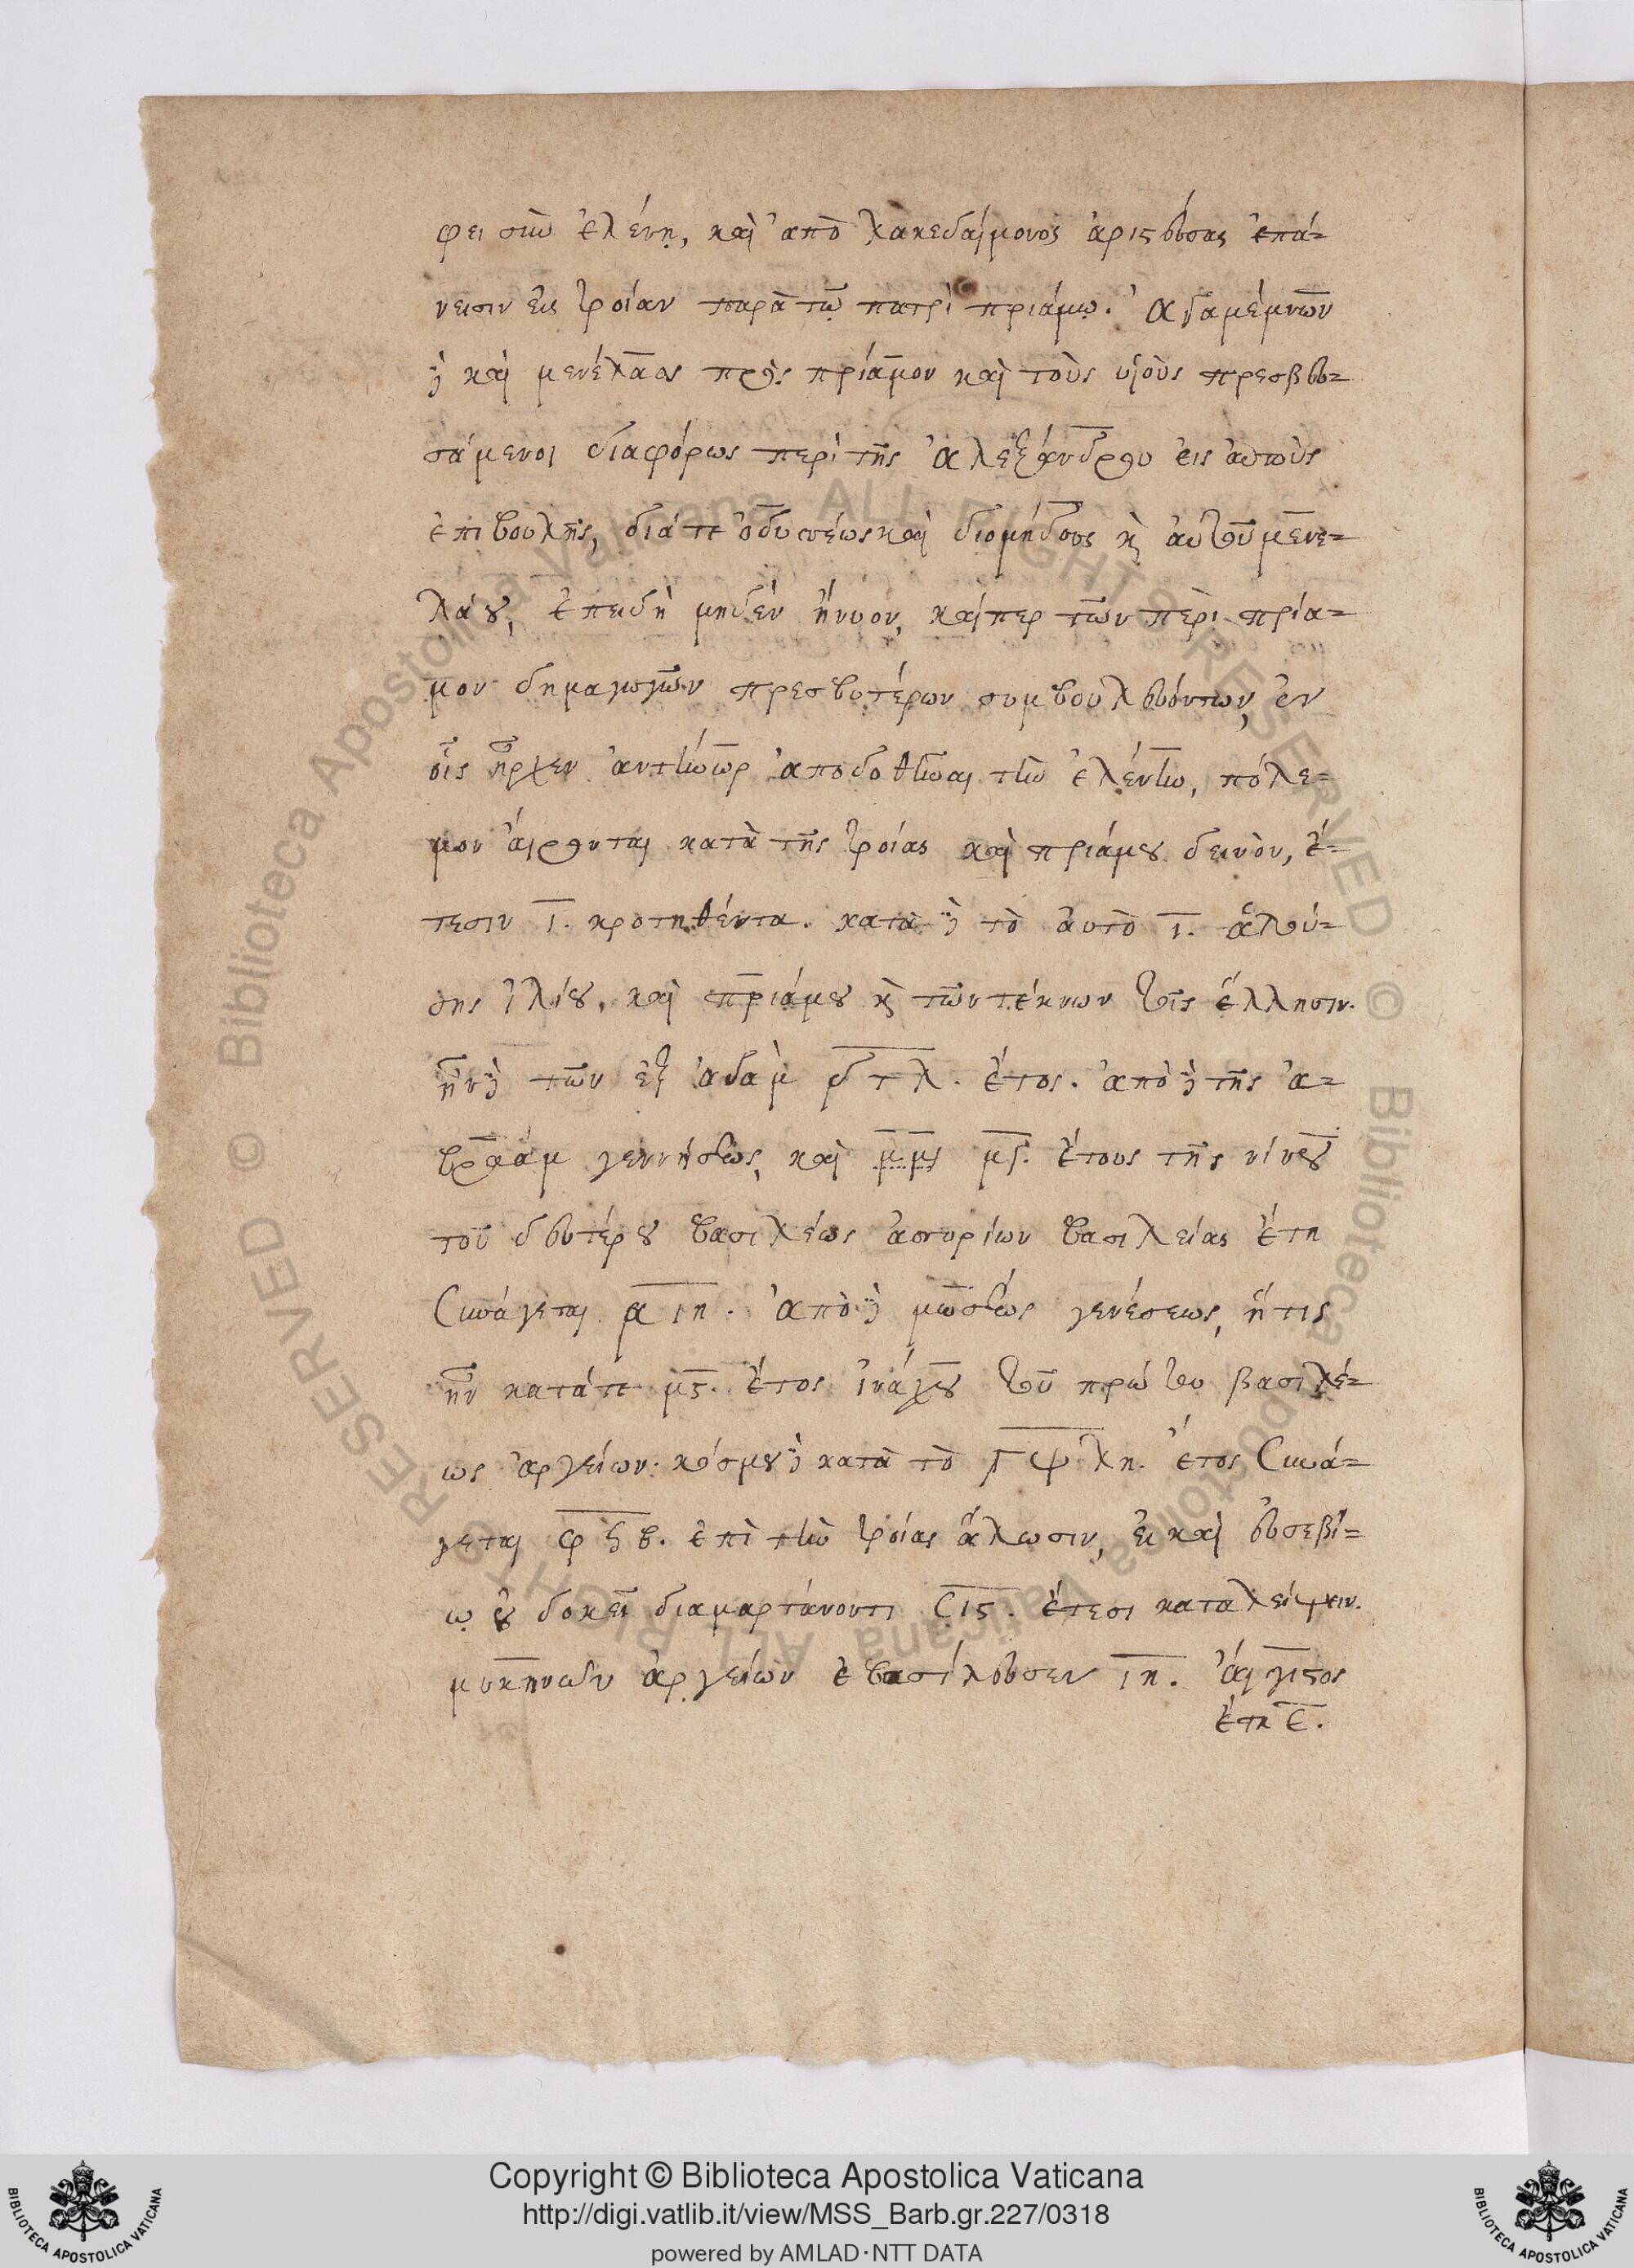 φει σὺν ἑλένῃ, καὶ ἀπὸ λακεδαίμονος ἀριστεύσας ἐπά-
νεισιν εἰς τροίαν παρὰ τῷ πατρὶ πριάμῳ. ἀγαμέμνων
δὲ καὶ μενέλαος πρὸς πρίαμον καὶ τοὺς υἱοὺς πρεσβευ-
σάμενοι διαφόρως περὶ τῆς ἀλεξάνδρου εἰς αὐτοὺς
ἐπιβουλῆς, διά τε ὀδυσσέως καὶ διομήδους καὶ αὐτοῦ μενε-
λάου, ἐπειδὴ μηδὲν ἤνυον, καίπερ τῶν περὶ πρία-
μον δημαγωγῶν πρεσβυτέρων συμβουλευόντων, ἐν
οἷς ἦρχεν ἀντήνωρ ἀποδοθῆναι τὴν ἑλένην, πόλε-
μον αἴρονται κατὰ τῆς τροίας καὶ πριάμου δεινὸν, ἔ-
τεσιν ι. κροτηθέντα. κατὰ δὲ τὸ αὐτὸ ι. ἁλού-
σης ἰλίου, καὶ πριάμου καὶ τῶν τέκνων τοῖς ἕλλησιν.
ἦν δὲ τῶν ἐξ ἀδὰμ ͵δτλ. ἔτος. ἀπὸ δὲ τῆς ἀ-
βραὰμ γεννήσεως, καὶ μ μς μς. ἔτους τῆς νίνου
τοῦ δευτέρου βασιλέως ἀσσυρίων βασιλείας ἔτη
συνάγεται ͵αιη. ἀπὸ δὲ μωσέως γενέσεως, ἥτις
ἦν κατά τε μς. ἔτος ἰνάχου τοῦ πρώτου βασιλέ-
ως ἀργείων. κόσμου δὲ κατὰ τὸ ͵γψλη. ἔτος συνά-
γεται φϟβ. ἐπὶ τὴν τροίας ἅλωσιν, εἰ καὶ εὐσεβί-
ῳ οὐ δοκεῖ διαμαρτάνοντι σις. ἔτεσι καταλείψειν.
μυκηνῶν ἀργείων ἐβασίλευσεν ιη. αἴγιστος
ἔτη ε.
Copyright © Biblioteca Apostolica Vaticana
http://digi.vatlib.it/view/MSS_Barb.gr.227/0318
powered by AMLAD·NTT DATA